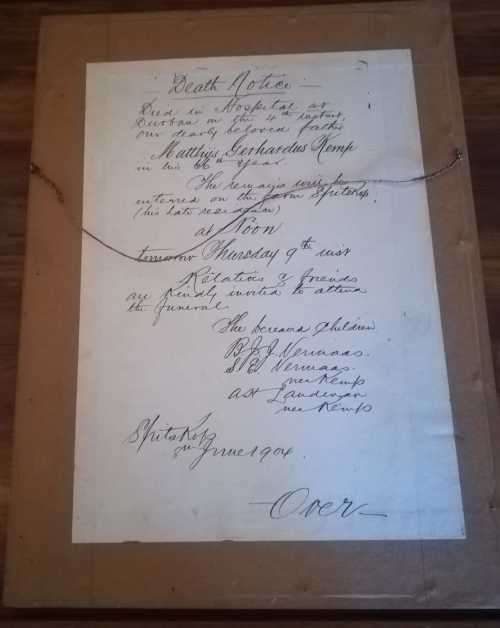 — Death Notice —
Died in Hospital at
Durban on the 4th instant,
our dearly beloved father
Matthys Gerhardus Kemp
in his 66th Year
The remains will be
interred on the farm Spitskop,
(his late residence)
at Noon
tomorrow Thursday 9th inst
Relatives & friends
are kindly invited to attend
the funeral.
The bereaved Children
B J J Vermaas.
S. E. Vermaas.
nee Kemp
nee Kemp
Spitskop
June 1904.
— Over —